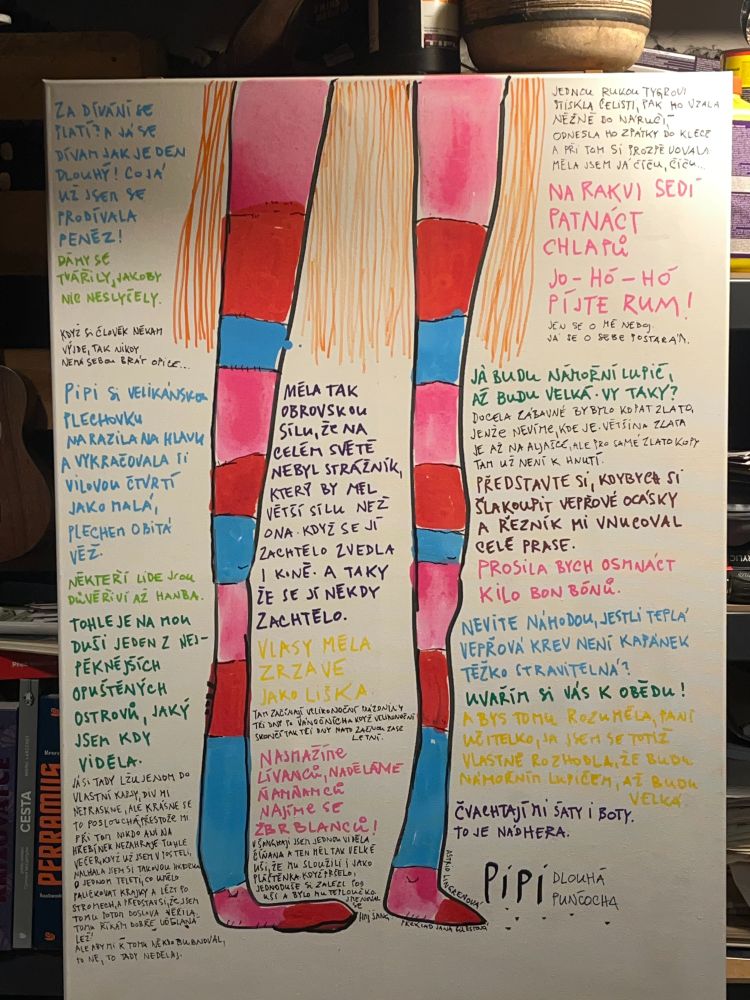 ZA DÍVÁNÍ SE
PLATÍ? A JÁ SE
DÍVÁM JAK JE DEN
DLOUHÝ! CO JÁ
UŽ JSEM SE
PRODÍVALA
PENĚZ!
DÁMY SE
TVÁŘILY, JAKOBY
NIC NESLYŠELY.
KDYŽ SI ČLOVĚK NĚKAM
VYJDE, TAK NIKDY
NEMÁ SEBOU BRÁT OPICE...
PIPI SI VELIKÁNSKOU
PLECHOVKU
NARAZILA NA HLAVU
A VYKRAČOVALA SI
VILOVOU ČTVRTÍ
JAKO MALÁ,
PLECHEM OBITÁ
VĚŽ.
NĚKTEŘÍ LIDÉ JSOU
DŮVĚŘIVÍ AŽ HANBA.
TOHLE JE NA MOU
DUŠI JEDEN Z NEJ-
PĚKNĚJŠÍCH
OPUŠTĚNÝCH
OSTROVŮ, JAKÝ
JSEM KDY
VIDĚLA.
JÁ SI TADY LŽU JENOM DO
VLASTNÍ KAPSY, DIV MI
NEPRASKNE, ALE KRÁSNĚ SE
TO POSLOUCHÁ PŘESTOŽE MI
PŘI TOM NIKDO ANI NA
HŘEBÍNEK NEZAHRAJE TUHLE
VEČER, KDYŽ UŽ JSEM V POSTELI,
NALHALA JSEM SI TAKOVOU
O JEDNOM TELETI, CO UMĚLO
PALIČKOVAT KRAJKY A LÉZT PO
STROMECH, A PŘEDSTAV SI, ŽE JSEM
TOMU POTOM DOSLOVA VĚŘILA.
TOMU ŘÍKÁM DOBŘE
LEŽ!
ALE ABY MI K TOMU NĚKDO BUBNOVAL,
TO NE, TO TADY NEDĚLAJ.
MĚLA TAK
OBROVSKOU
SÍLU, ŽE NA
CELÉM SVĚTĚ
NEBYL STRÁŽNÍK,
KTERÝ BY MĚL
VĚTŠÍ SÍLU NEŽ
ONA. KDYŽ SE JÍ
ZACHTĚLO ZVEDLA
I KONĚ. A TAKY
ŽE SE JÍ NĚKDY
ZACHTĚLO.
VLASY MĚLA
ZRZAVÉ
JAKO LIŠKA.
TAM ZAČÍNAJÍ VELIKONOČNÍ PRÁZDNINY
TŘI DNY PO VÁNOČNÍCH A KDYŽ VELIKONOČNÍ
SKONČÍ TAK TŘI DNY NATO ZAČNOU ZASE
LETNÍ.
NASMAŽÍME
LÍVANCŮ, NADĚLÁME
ŇAMŇANCŮ
NAJÍME SE
ŽBRBLANCŮ!
V ŠANGHAJI JSEM JEDNOU VIDĚLA
ČÍŇANA A TEN MĚL TAK VELKÉ
UŠI, ŽE MU SLOUŽILI I JAKO
PLÁŠTĚNKA KDYŽ PRŠELO,
JEDNODUŠE SI ZALEZL POD
UŠI A BYLO MU TEPLOUČKO.
JMENOVAL
SE
HAJ ŠANG
JEDNOU RUKOU TYGROVI
STISKLA ČELISTI, PAK HO VZALA
NĚŽNĚ DO NÁRUČÍ,
ODNESLA HO ZPÁTKY DO KLECE
A PŘI TOM SI PROZPĚVOVALA
MĚLA JSEM JÁ ČIČU, ČIČU...
NA RAKVI SEDÍ
PATNÁCT
CHLAPŮ
JO-HÓ-HÓ
PIJTE RUM!
JEN SE O MĚ NEBOJ.
JÁ SE O SEBE POSTARÁM.
JÁ BUDU NÁMOŘNÍ LUPIČ,
AŽ BUDU VELKÁ. VY TAKY?
DOCELA ZÁBAVNÉ BY BYLO KOPAT ZLATO,
JENŽE NEVÍME, KDE JE. VĚTŠINA ZLATA
JE AŽ NA ALJAŠCE, ALE PRO SAMÉ ZLATOKOPY
TAM UŽ NENÍ K HNUTÍ.
PŘEDSTAVTE SI, KDYBYCH SI
ŠLA KOUPIT VEPŘOVÉ OCÁSKY
A ŘEZNÍK MI VNUCOVAL
CELÉ PRASE.
PROSILA BYCH OSMNÁCT
KILO BONBÓNŮ.
NEVÍTE NÁHODOU, JESTLI TEPLÁ
VEPŘOVÁ KREV NENÍ KAPÁNEK
TĚŽKO STRAVITELNÁ?
UVAŘÍM SI VÁS K OBĚDU!
ABYS TOMU ROZUMĚLA, PANÍ
UČITELKO, JÁ JSEM SE TOTIŽ
VLASTNĚ ROZHODLA, ŽE BUDU
NÁMOŘNÍM LUPIČEM, AŽ BUDU
VELKÁ.
ČVACHTAJÍ MI ŠATY I BOTY.
TO JE NÁDHERA.
ASTRID LINDGRENOVÁ
PÍPÍ DLOUHÁ
PUNČOCHA
PŘEKLAD JANA
CESTA
PERRAMUS